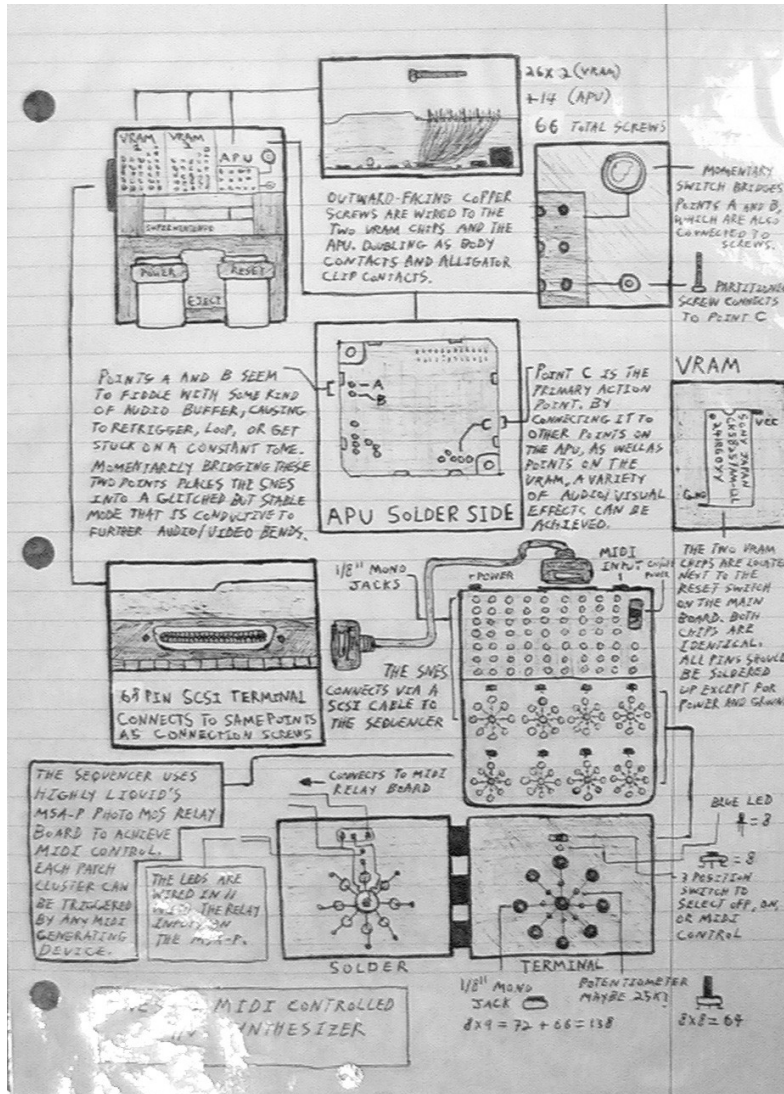 26X 2 (VRAM)
+14 (APU)
66 TOTAL SCREWS
VRAM
1
VRAM
2
APU
SUPER NINTENDO
POWER
RESET
EJECT
OUTWARD-FACING COPPER
SCREWS ARE WIRED TO THE
TWO VRAM CHIPS AND THE
APU. DOUBLING AS BODY
CONTACTS AND ALLIGATOR
CLIP CONTACTS.
MOMENTARY
SWITCH BRIDGES
POINTS A AND B,
WHICH ARE ALSO
CONNECTED TO
SCREWS.
PARTITIONED
SCREW CONNECTS
TO POINT C
POINTS A AND B SEEM
TO FIDDLE WITH SOME KIND
OF AUDIO BUFFER, CAUSING
TO RETRIGGER, LOOP, OR GET
STUCK ON A CONSTANT TONE.
MOMENTARILY BRIDGING THESE
TWO POINTS PLACES THE SNES
INTO A GLITCHED BUT STABLE
MODE THAT IS CONDUCTIVE TO
FURTHER AUDIO/VIDEO BENDS.
A
B
C
APU SOLDER SIDE
POINT C IS THE
PRIMARY ACTION
POINT. BY
CONNECTING IT TO
OTHER POINTS ON
THE APU, AS WELL AS
POINTS ON THE
VRAM, A VARIETY
OF AUDIO/VISUAL
EFFECTS CAN BE
ACHIEVED.
VRAM
VCC
SONY JAPAN
GND
THE TWO VRAM
CHIPS ARE LOCATED
NEXT TO THE
RESET SWITCH
ON THE MAIN
BOARD. BOTH
CHIPS ARE
IDENTICAL.
ALL PINS SHOULD
BE SOLDERED
UP EXCEPT FOR
POWER AND GROUND
1/8" MONO
JACKS
POWER
MIDI
INPUT
POWER
68 PIN SCSI TERMINAL
CONNECTS TO SAME POINTS
AS CONNECTION SCREWS
THE SNES
CONNECTS VIA A
SCSI CABLE TO
THE SEQUENCER
THE SEQUENCER USES
HIGHLY LIQUID'S
MSA-P PHOTO MOS RELAY
BOARD TO ACHIEVE
MIDI CONTROL.
EACH PATCH
CLUSTER CAN
BE TRIGGERED
BY ANY MIDI
GENERATING
DEVICE.
CONNECTS TO MIDI
RELAY BOARD
THE LEDS ARE
WIRED IN //
WITH THE RELAY
INPUTS ON
THE MSA-P.
SOLDER
TERMINAL
BLUE LED
=8
=8
3 POSITION
SWITCH TO
SELECT OFF, ON,
OR MIDI
CONTROL
1/8" MONO
JACK
8X9=72+66=138
POTENTIOMETER
MAYBE 25K?
8X8=64
MIDI CONTROLLED